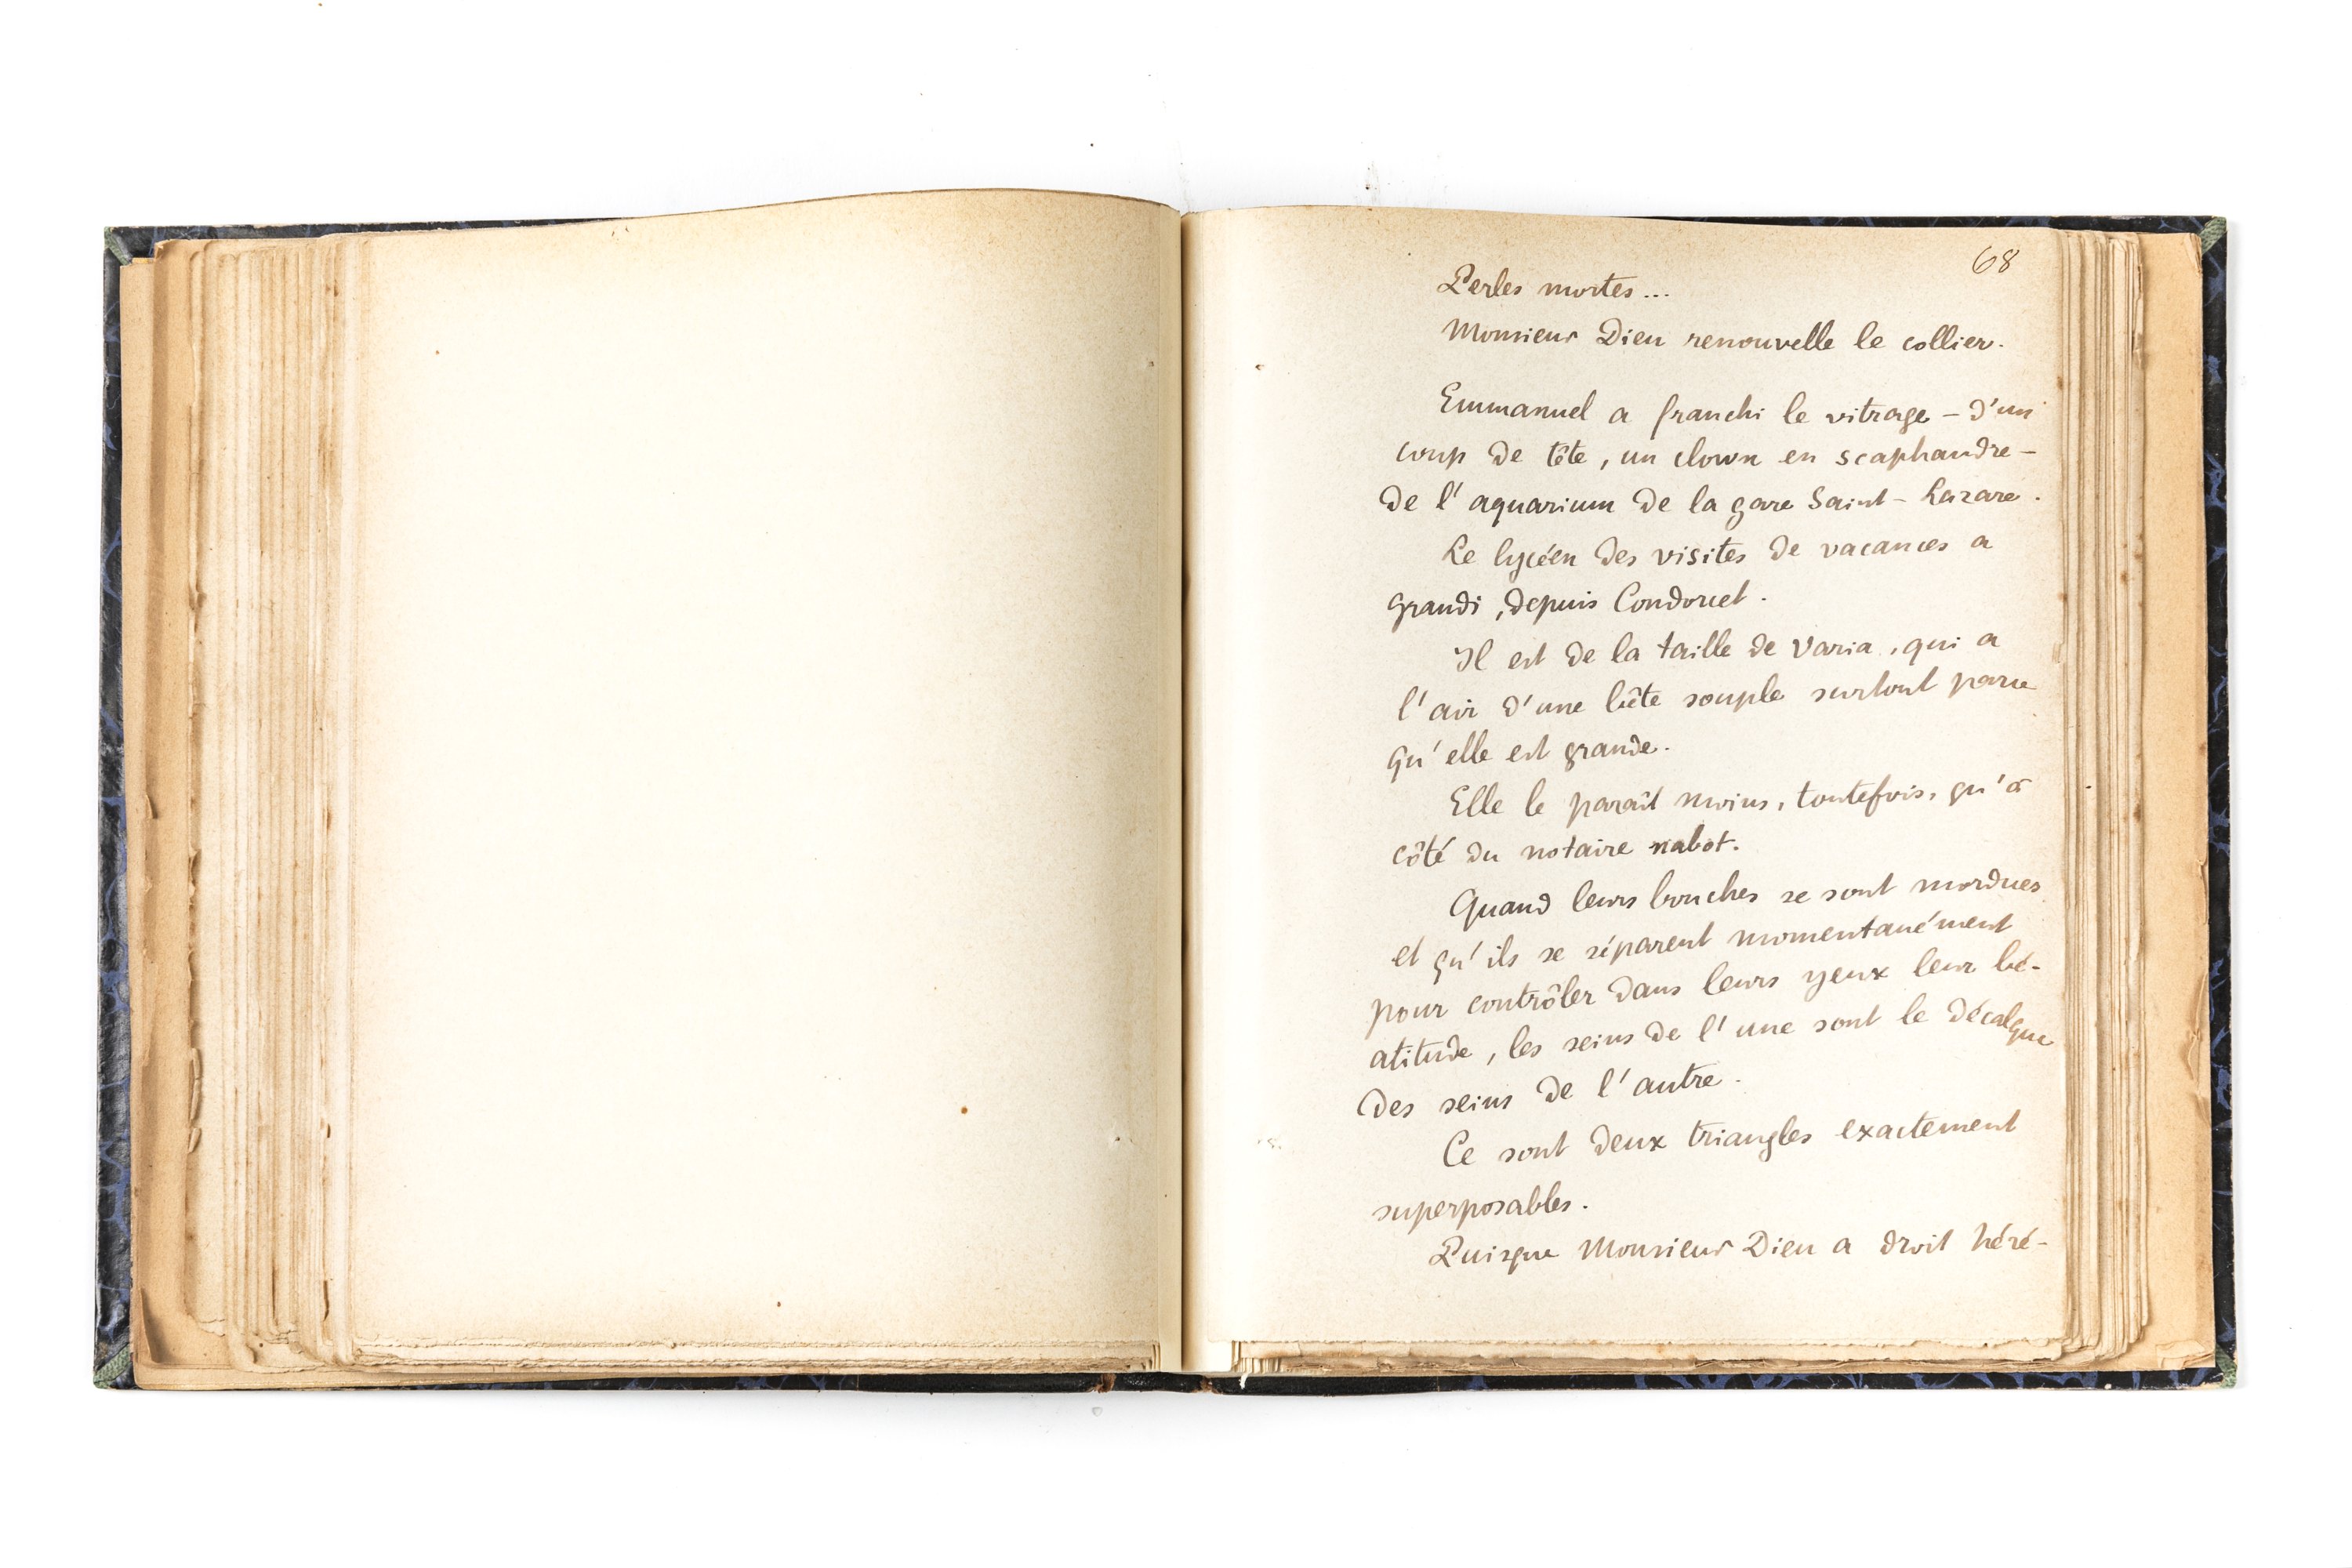 68
Perles mortes...
Monsieur Dieu renouvelle le collier.
Emmanuel a franchi le vitrage – d'un
coup de tête, un clown en scaphandre –
de l'aquarium de la gare Saint-Lazare.
Le lycéen des visites de vacances a
grandi, depuis Condorcet.
Il est de la taille de Varia, qui a
l'air d'une bête souple surtout parce
qu'elle est grande.
Elle le paraît moins, toutefois, qu'à
côté du notaire nabot.
Quand leurs bouches se sont mordues
et qu'ils se séparent momentanément
pour contrôler dans leurs yeux leur bé-
atitude, les seins de l'une sont le décalque
des seins de l'autre.
Ce sont deux triangles exactement
superposables.
Puisque Monsieur Dieu a droit héré-